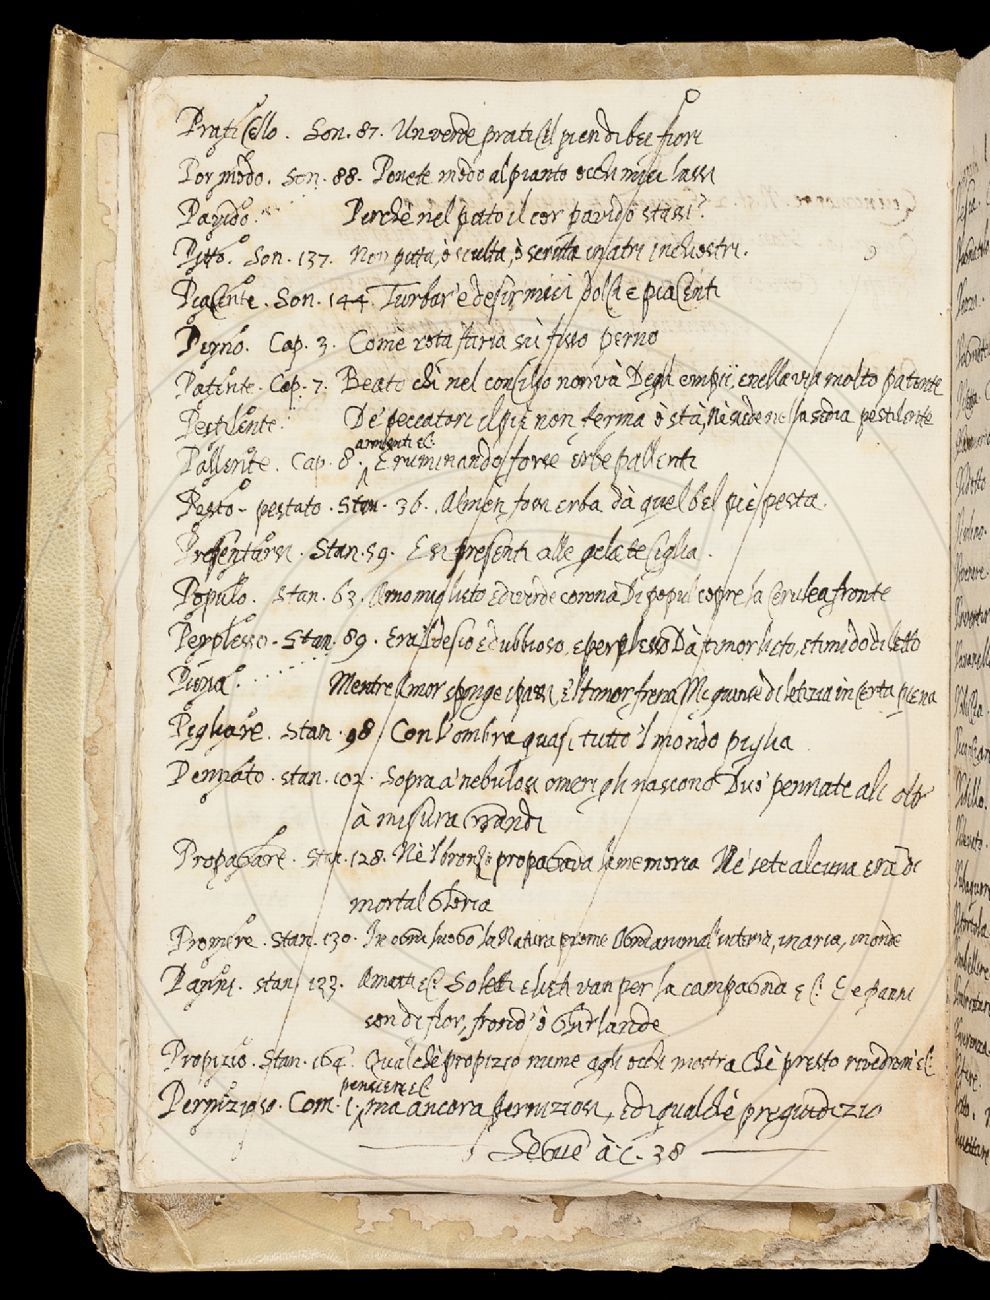 Praticello. Son. 87. Un verde praticel pien di bei fiori
Por modo. Son. 88. Ponete modo al pianto occhi miei lassi
Pavido. Perchè nel petto il cor pavido stassi?
Pitto. Son. 137. Non pitta, ò sculta, ò scritta in atri inchiostri.
Piacente. Son. 144. Turbar' e desir miei dolci e piacenti
Perno. Cap. 3. Come rota staria sù fisso perno
Patente. Cap. 7. Beato chi nel consiglio non và Degli empii, e nella via molto patente
Pestilente. De' peccatori il piè non ferma ò stà, Nè siede nella sedia pestilente
armenti &c.
Pallente. Cap. 8. E ruminando forse erbe pallenti
Pesto - pestato. Stan. 36. Almen foss' erba dà quel bel piè pesta.
Presentarsi. Stan. 59. E si presenti alle gelate ciglia.
Populo. Stan. 63. Amomiglisto ed verde corona Di popul copre la cerulea fronte
Perplesso. Stan. 89. Era'l desio e dubbioso, e perplesso Dà timor lieto, e timido diletto
Piena. Mentre Amor spinge i passi e'l timor frena Mi guavse di letizia incerta piena
Pigliare. Stan. 98 Con l'ombra quasi tutto'l mondo piglia
Pennato. Stan. 102. Sopra a' nebulosi omeri gli nascono Due pennate ali oltr'
à misura grandi
Propagare. Stan. 128. Nè'l bronzo propagava la memoria Nè sete alcuna era di
mortal gloria
Promere. Stan. 130. In ogni luogo la Natura prome Ogni animal' in terra, in aria, in onde
Panni. Stan. 133. Amanti &c. Soletti e lieti van per la campagna &c. E e panni
son di fior, frond' ò ghirlande
Propizio. Stan. 164. Qualchè propizio nume agli occhi mostra Chè presto rivedrem &c.
pensieri &c.
Pernizioso. Com. 1. ma ancora perniziosi, e di qualchè pregiudizio
Segue à C. 38